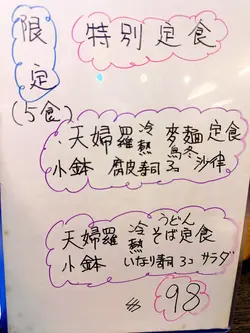 限定
(5食)
特別定食
天婦羅 冷 熱 烏冬 麥麵定食
小鉢 腐皮寿司 3コ 沙律
天婦羅 冷 熱 うどん そば定食
小鉢 いなり寿司 3コ サラダ
98